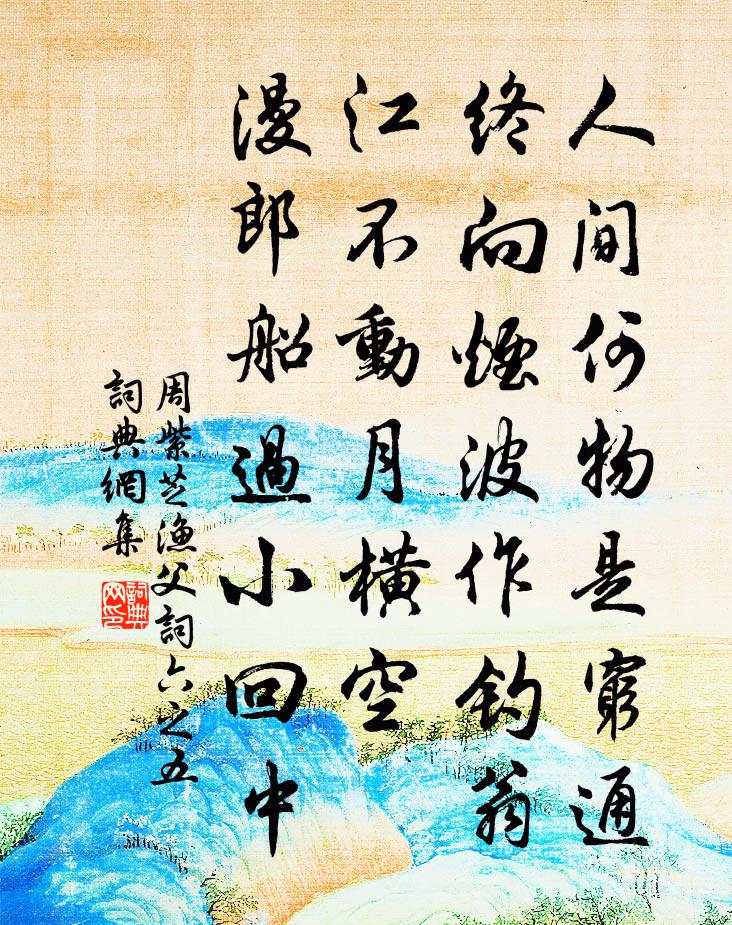 人間何物是窮通
終向煙波作釣翁
江不動月橫空
漫郎船過小回中
周紫芝漁父詞六之五
詞典網集
詞典
网印